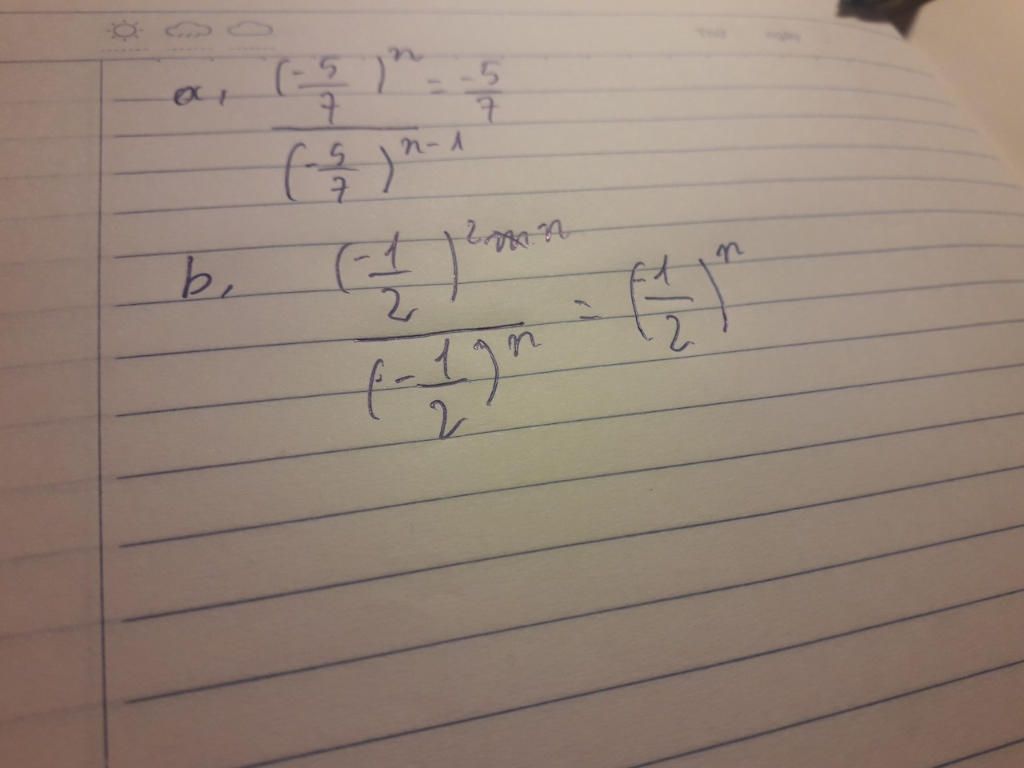 a, (-5/7)^n / (-5/7)^{n-1} = -5/7
b, (-1/2)^{2n} / (-1/2)^n = (-1/2)^n